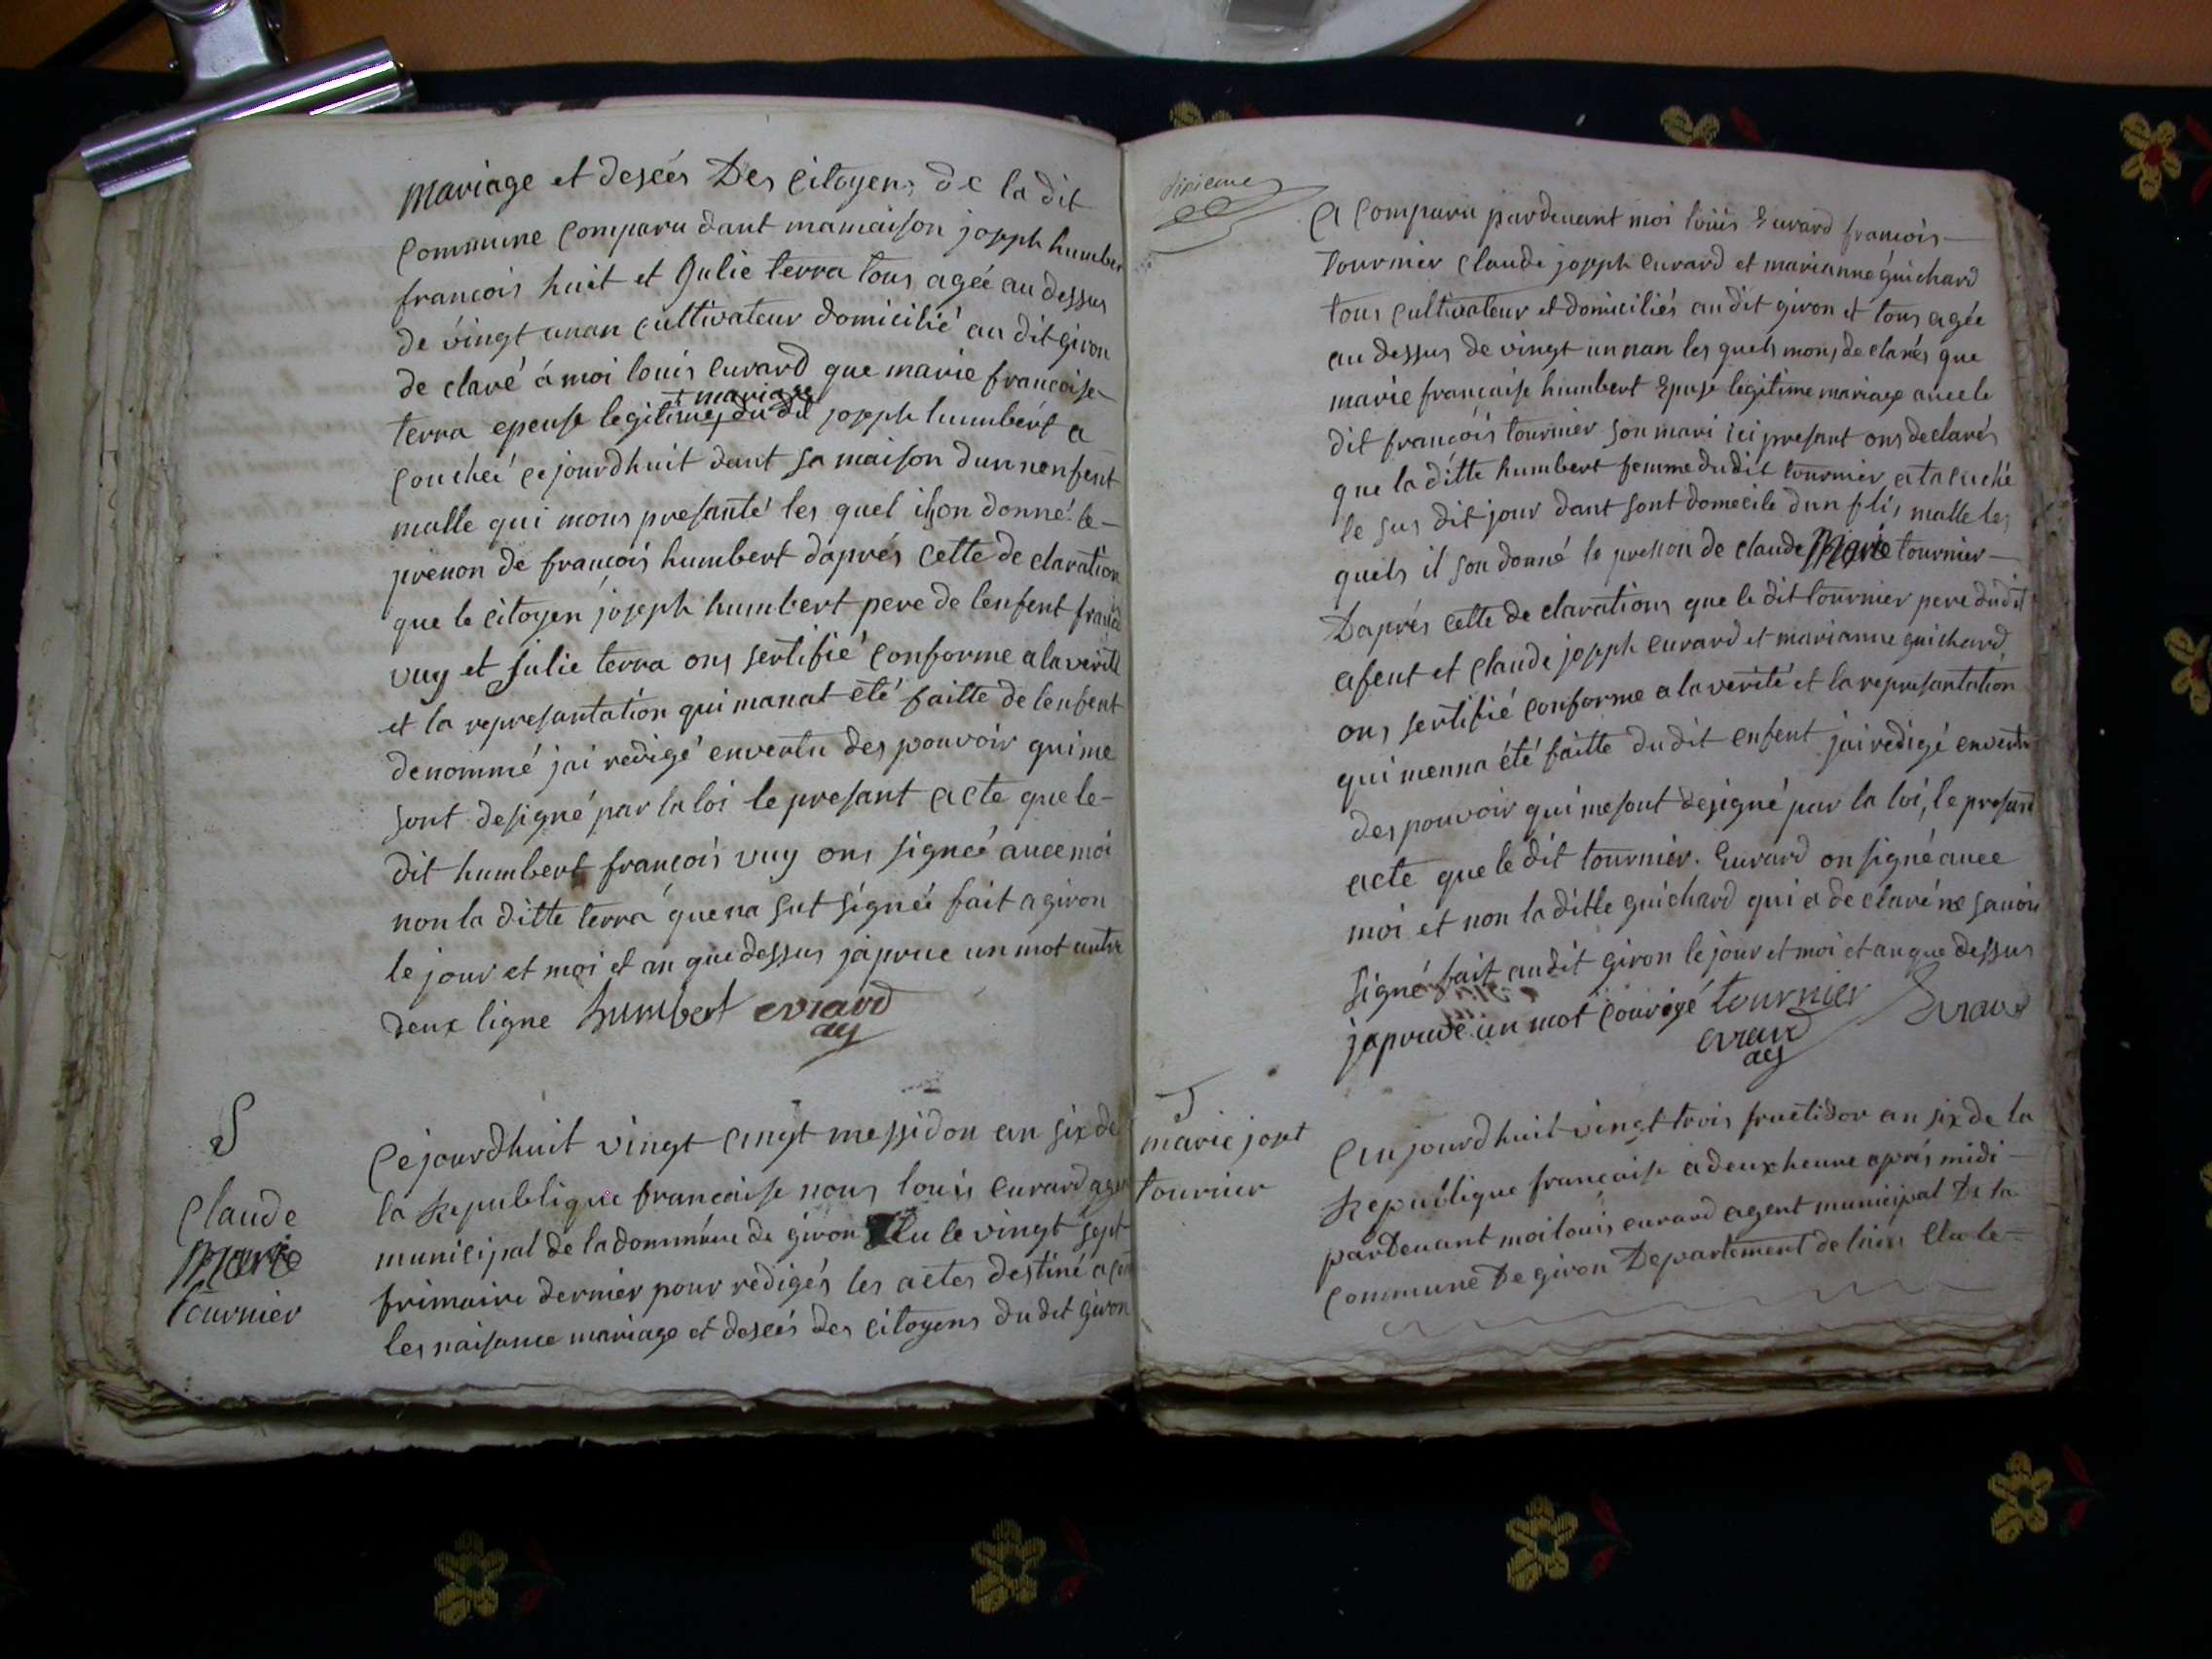 mariage et deseés Des Citoyens de la dit
Commune Comparu dant mamaison joseph humbe
francois huit et Julie terra tous ageé au dessus
de vingt unan Cultivateur domicilié au dit giron
de claré a moi louis Eurard que marie francoise
mariage
terra epeuse legitime du dit joseph humbert a
Coucheé Cejourdhuit dant sa maison dunnenfent
malle qui mons presanté les quel ilson donné le
prenon de francois humbert daprés Cette de claration
que le Citoyen joseph humbert pere de lenfent
vuy et Julie terra ons sertifié Conforme a la verité
et la represantation qui manat eté faitte de lenfent
denommé jai redigé enverlu des pouvoir qui me
sont designé par la loi le presant acte que le
dit humbert francois vuy ons signeé auce moi
non la ditte terra que na sut signeé fait a giron
le jour et moi et an que dessus japrue un mot entre
deux ligne humbert evrard
ag
Claude
marie
tournier
Cejourdhuit vingt Cinqt messidor an six de
la Republique francaise nous louis Eurard agen
municipal de la Commune de giron Elu le vingt sept
frimaire dernier pour redigés les actes destiné a
les naisance mariage et deseés des Citoyens du dit giron
dixieme
a Comparu pardeuant moi louis Eurard francois
Tournier Claude joseph Eurard et marianne guichard
tous Cultivateur et domiciliés au dit giron et tous ageé
au dessus de vingt un nan les quels mons declarés que
marie francaise humbert Epuse legitime mariage auce le
dit francois tournier son mari ici presant ons declarés
que la ditte humbert femme du dit tournier ata cuché
le sus dit jour dant sont domecile dun flis malle les
quels il son donné le prenon de claude Marie tournier
Daprés cette de clarations que le dit tournier pere du dit
afent et Claude joseph Eurard et marianne guichard
ons sertifié conforme a la verité et la represantation
qui menna été faitte du dit enfent jai redigé envertu
des pouvoir qui me sont designé par la loi, le presant
acte que le dit tournier. Eurard on signé auce
moi et non la ditte guichard qui a de claré ne sauoir
signé fait au dit giron le jour et moi et an que dessus
japruve un mot Courigé tournier Evrard
evrard
ag
marie jost
tournier
Aujourdhuit vingt trois fructidor an six de la
Republique francaise a deux heure aprés midi
pardeuant moi louis eurard agent municipal De la
Commune De giron Departement de lain Elu le